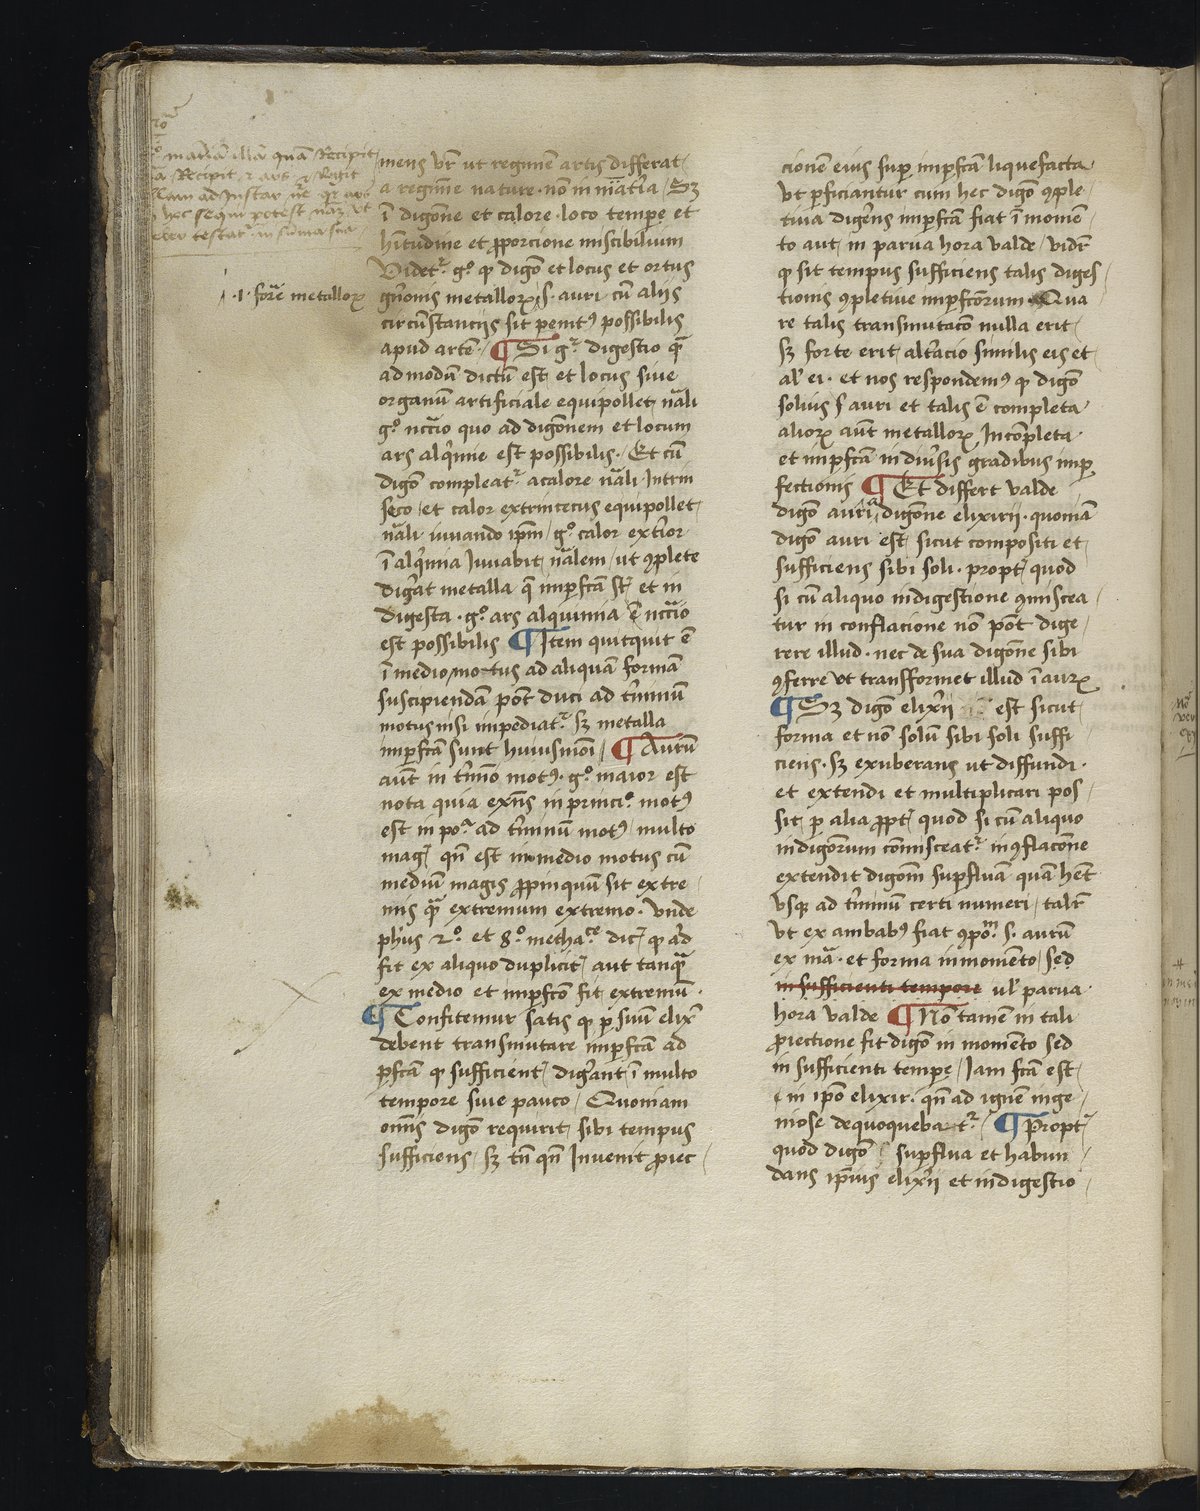 materiā illā quā Recipit
a Recipit & ars & Regit
illam ad Instar
hec sequi potest nāz vt
testatʳ in suma sua
.1. forē metalloꝝ
mens vr̄ ut regimē artis differat
a regimīe nature · nōn in māt̄ia / Sꝫ
ī digōne et calore · loco temꝑe et
hītudine et ꝓporcione miscibilium
Videtʳ · gᵒ ꝙ digō et locus et ortus
gn̄onis metalloꝝ / s · auri cū alijs
circūstancijs sit penitꝰ possibilis
apud artē · ¶ Si gᵒ digestio qᷓ
ad modū dictū est et locus siue
organū artificiale equipollet nāli
gᵒ nccīo quo ad digōnem et locum
ars alqīmie est possibilis · Et cū
digō compleatʳ a calore nāli Intrin
seco / et calor extrincecus equipollet
nāli iuuando ip̄m / gᵒ calor ext̄ior
ī alqīmia Iuuabit nālem / ut ꝯplete
diḡat metalla q̄ imꝑfcā st̄ et in
digesta · gᵒ ars alquimia ē nccīo
est possibilis ¶ Item quitquit ē
ī medio / motus ad aliquā formā
suscipiendā pōt duci ad t̄minū
motus nisi impediatʳ sꝫ metalla
imꝑfcā sunt huiusmōi / ¶ Aurū
aūt in t̄mīo motꝰ · gᵒ maior est
nota quia exn̄s in princiᵒ motꝰ
est in poᵃ ad t̄minū motꝰ / multo
magꝭ qn̄ est in medio motus cū
mediū magis ꝓpinquū sit extre
mis qᷓ extremum extremo · vnde
ph̄us 2ᵒ et 8ᵒ methaᶜᵉ dict ꝙ ad
fit ex aliquo duplicit̄ aut tanqᷓ
ex medio et imꝑfcō fit extremū ·
¶ Confitemur satis ꝙ ꝑ suū elix̄
debent transmutare imꝑfcā ad
ꝑfcā ꝙ sufficient̄ diḡant ī multo
tempore siue pauco / Quoniam
omīs digō requirit sibi tempus
sufficiens / sꝫ tn̄ qn̄ Inuenit ꝓiec
cionē eius suꝑ imꝑfcā liquefacta
vt ꝑficiantur cum hec digō ꝯple
tiua diḡens imꝑfcā fiat ī momē
to aut / in parua hora valde / vidr̄
ꝙ sit tempus sufficiens talis diges
tionis ꝯpletiue imꝑfcōrum · Qua
re talis transmutacō nulla erit
sꝫ forte erit alt̄acio similis eis et
al̄ ei · et nos respondemꝰ ꝙ digō
solius s auri et talis ē completa
alioꝝ aūt metalloꝝ Incōpleta ·
et imꝑfcā in diūsis gradibus imꝑ
fectionis ¶ Et differt valde
digō auri a digōne elixirij · quoniā
digō auri est sicut compositi et
sufficiens sibi soli · propt̄ quod
si cū aliquo indigestione ꝯmiscea
tur in conflacione nōn pōt dige
rere illud · nec de sua digōne sibi
ꝯferre vt transformet illud ī auꝝ
¶ Sꝫ digō elix̄ij est sicut
forma et nōn solū sibi soli suffi
ciens · sꝫ exuberans ut diffundi ·
et extendi et multiplicari pos
sit ꝑ alia ꝓpt̄ quod si cū aliquo
indigōrum cōmisceatʳ in ꝯflacōne
extendit digōm̄ suꝑfluā quā hēt
vsqꝫ ad t̄minū certi numeri / talr̄
vt ex ambabꝰ fiat ꝯpoᵐ · s · aurū
ex mā · et forma in momento / sed
in sufficienti tempore ul̄ parua
hora valde ¶ Nō tamē in tali
ꝓiectione fit digō in momēto sed
in sufficienti temꝑe / Iam fcā est
in ip̄o elixir · qn̄ ad ignē inge
niose dequoquebatʳ / ¶ Propt̄
quod digō / suꝑflua et habun
dans ip̄ius elix̄ij et indigestio